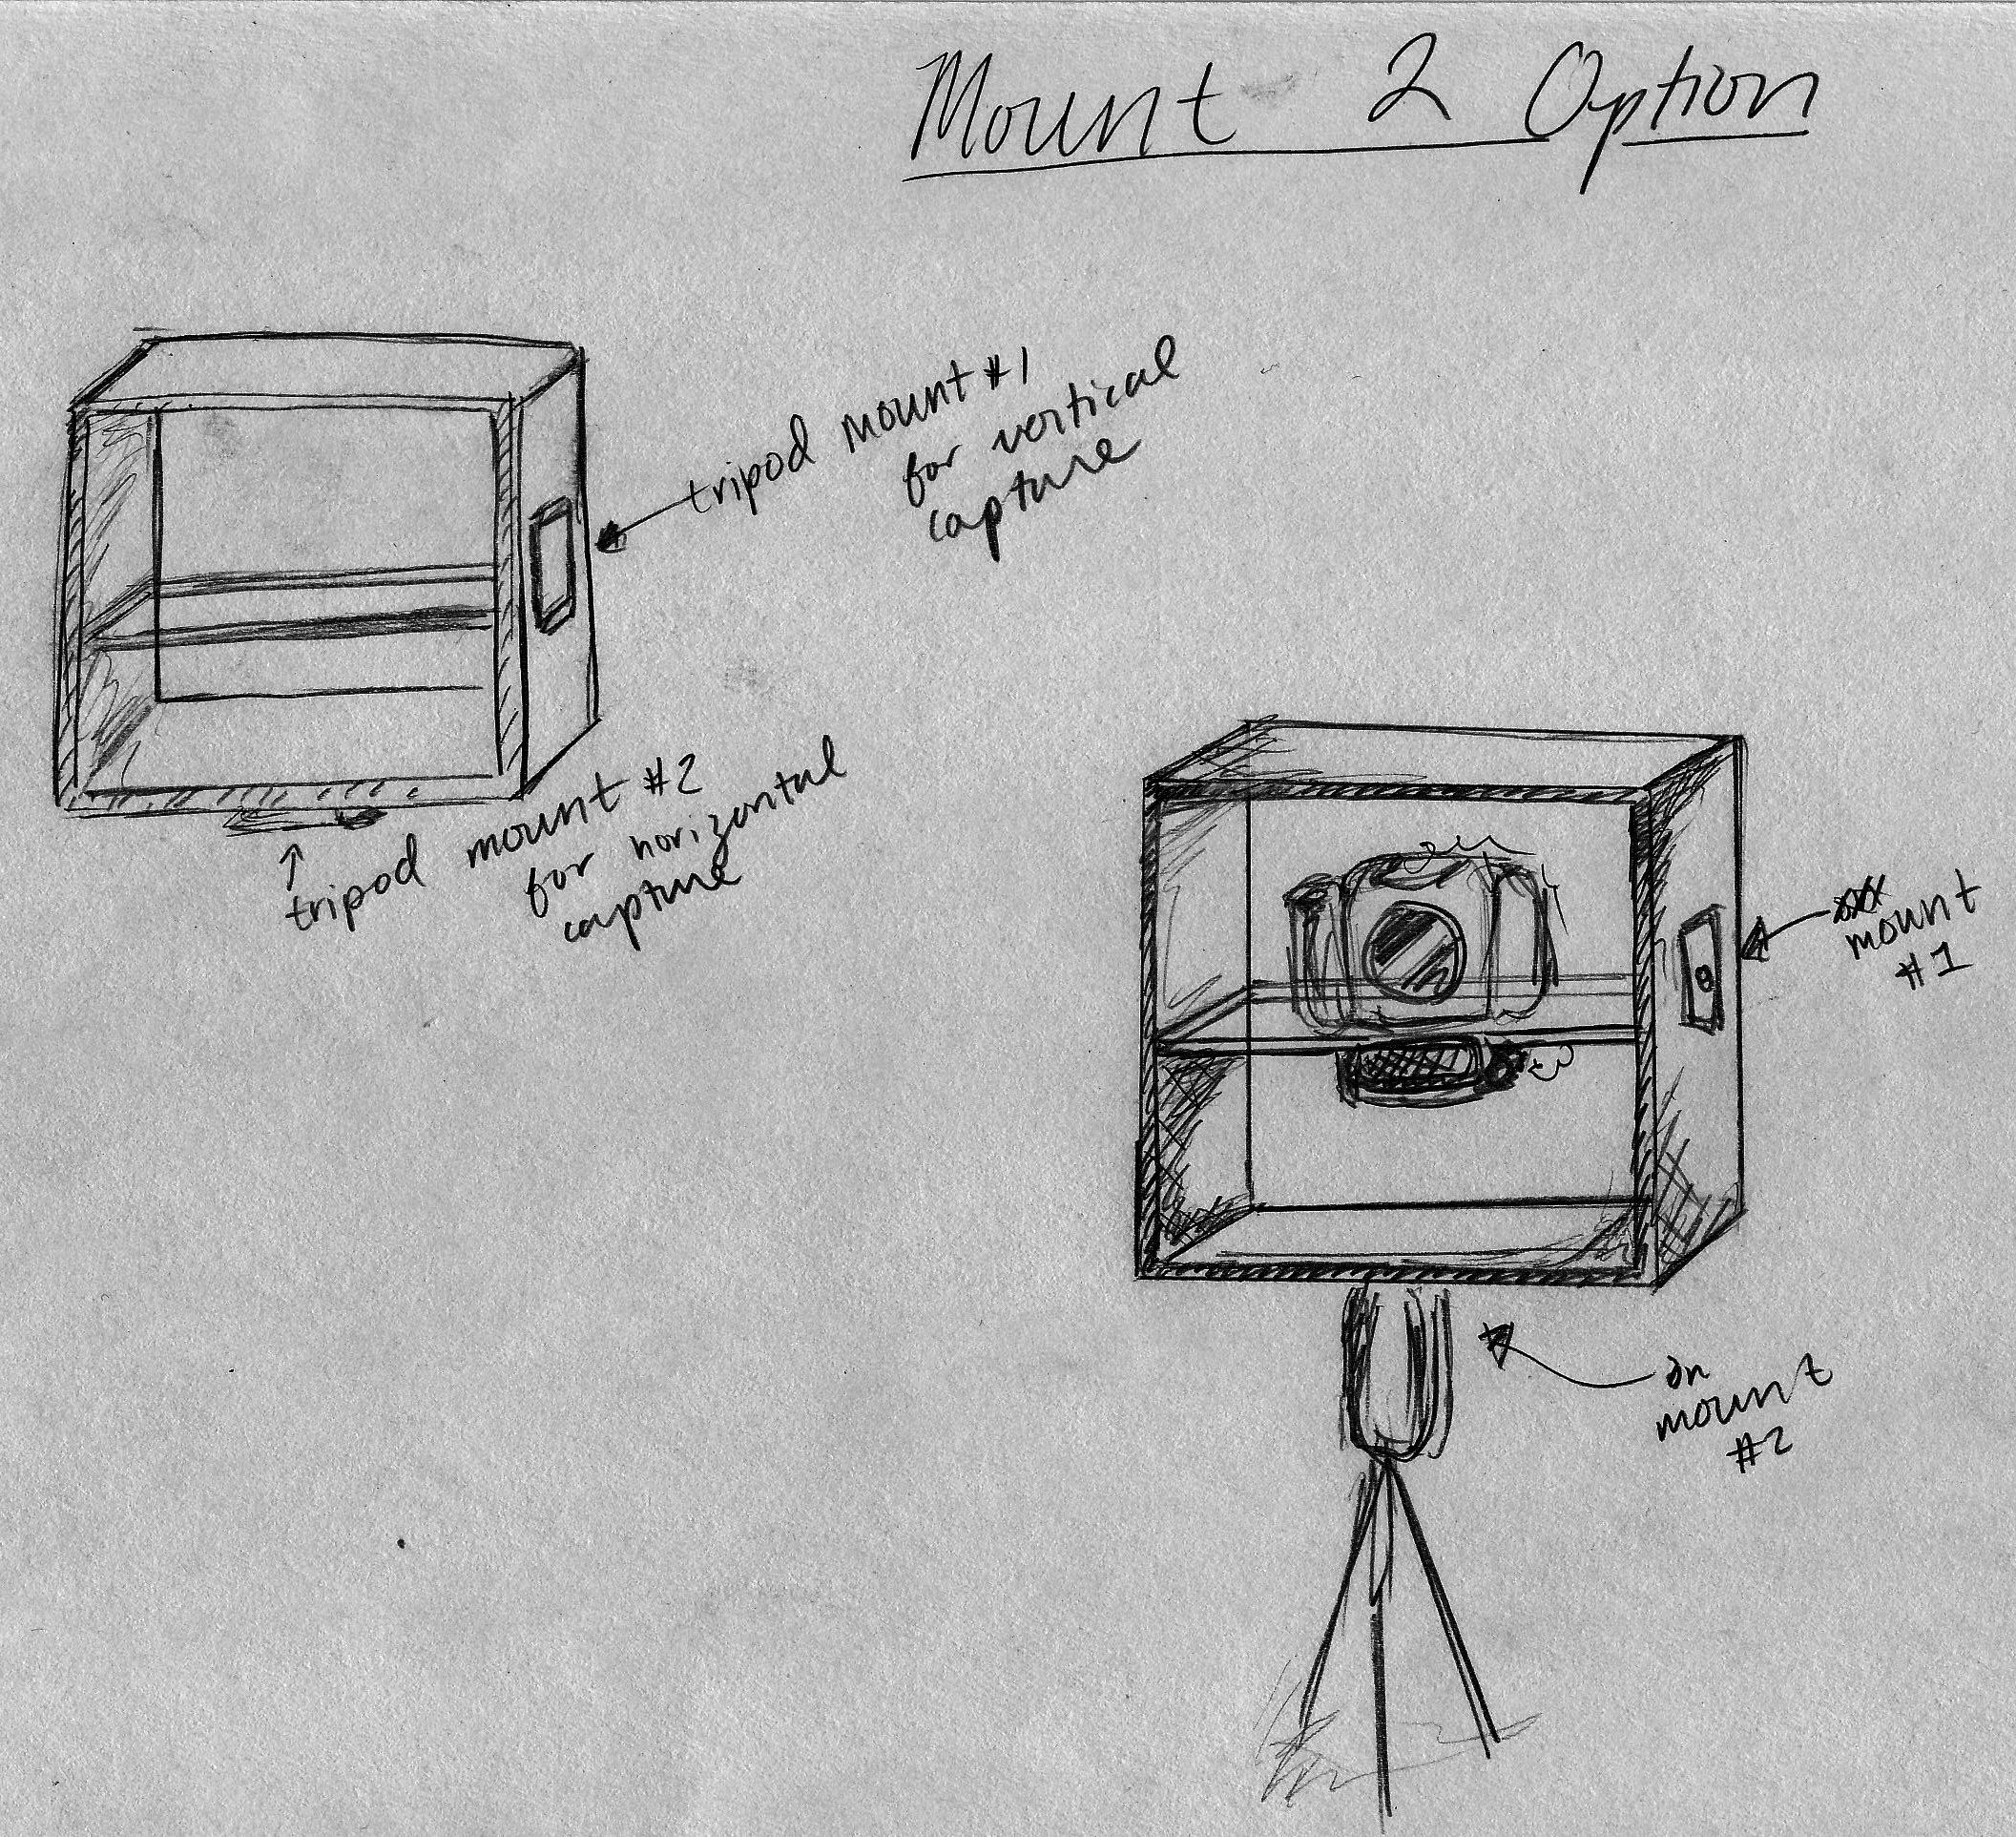 Mount 2 Option
tripod mount #1
for vertical
capture
tripod mount #2
for horizontal
capture
mount
#1
on
mount
#2